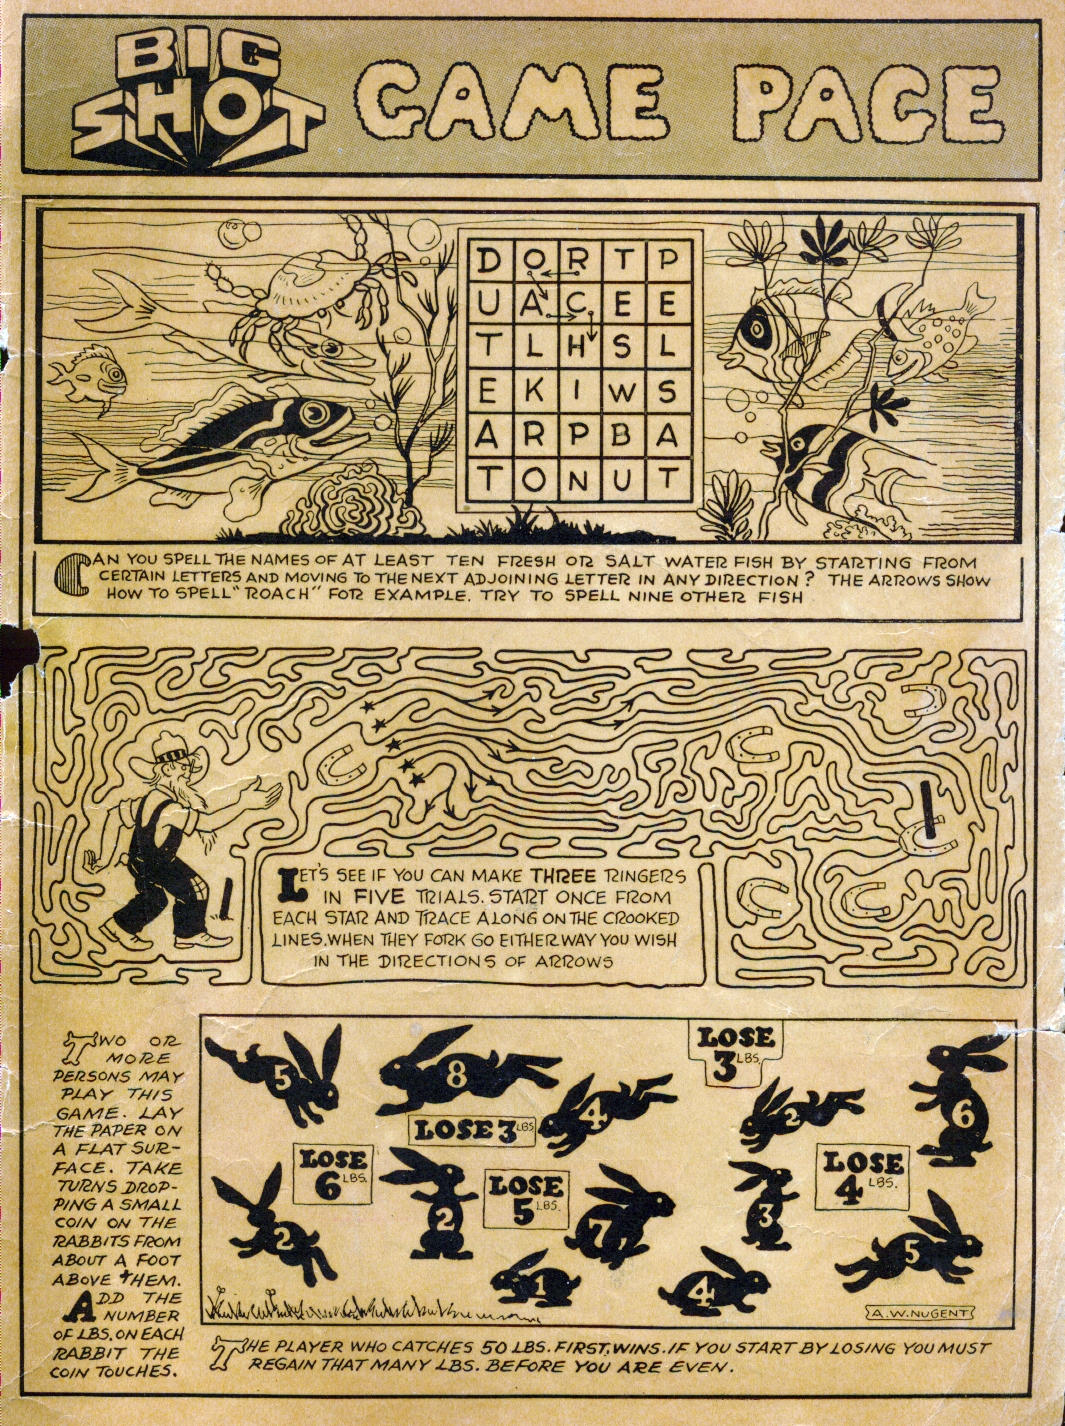 BIG
SHOT
GAME PAGE
D O R T P
U A C E E
T L H S L
E K I W S
A R P B A
T O N U T
CAN YOU SPELL THE NAMES OF AT LEAST TEN FRESH OR SALT WATER FISH BY STARTING FROM
CERTAIN LETTERS AND MOVING TO THE NEXT ADJOINING LETTER IN ANY DIRECTION? THE ARROWS SHOW
HOW TO SPELL "ROACH" FOR EXAMPLE. TRY TO SPELL NINE OTHER FISH
LET'S SEE IF YOU CAN MAKE THREE RINGERS
IN FIVE TRIALS. START ONCE FROM
EACH STAR AND TRACE ALONG ON THE CROOKED
LINES. WHEN THEY FORK GO EITHER WAY YOU WISH
IN THE DIRECTIONS OF ARROWS
TWO OR
MORE
PERSONS MAY
PLAY THIS
GAME. LAY
THE PAPER ON
A FLAT SUR-
FACE. TAKE
TURNS DROP-
PING A SMALL
COIN ON THE
RABBITS FROM
ABOUT A FOOT
ABOVE THEM.
ADD THE
NUMBER
OF LBS. ON EACH
RABBIT THE
COIN TOUCHES.
5
8
4
LOSE
3 LBS.
2
6
LOSE 3 LBS.
LOSE
6 LBS.
2
LOSE
5 LBS.
7
3
LOSE
4 LBS.
2
5
1
4
A.W. NUGENT
THE PLAYER WHO CATCHES 50 LBS. FIRST, WINS. IF YOU START BY LOSING YOU MUST
REGAIN THAT MANY LBS. BEFORE YOU ARE EVEN.